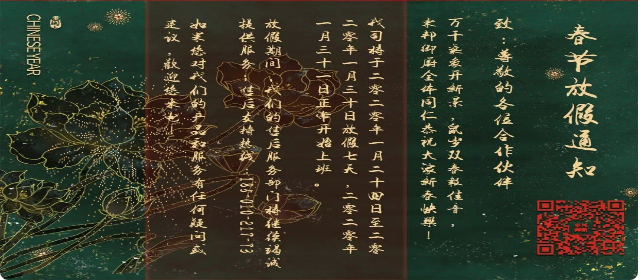 春节放假通知
致：尊敬的各位合作伙伴
万千气象开新景，岁少双春报佳音，
来邦御厨全体同仁恭祝大家新春快乐！
我司将于二零二零年一月二十四日至二零
二零年一月三十日放假七天，二零二零年
一月三十一日正式开始上班。
放假期间，我们的售后服务部门将继续竭诚
提供服务，售后支持热线：
如果您对我们的产品和服务有任何疑问或
建议，欢迎您来电！
CHINESE YEAR